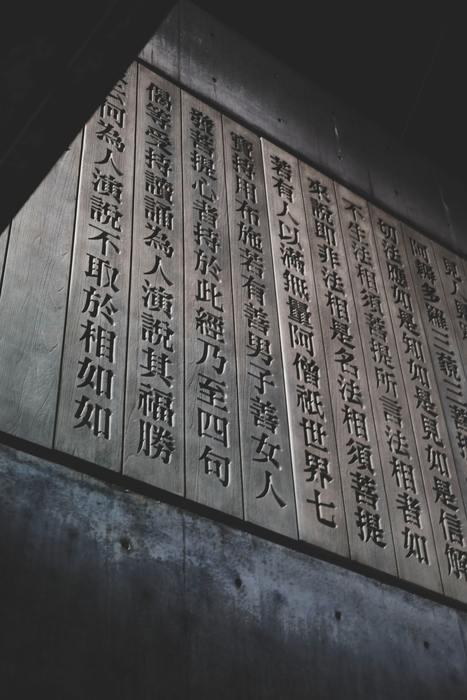 阿耨多羅三藐三菩
切法應如是知如是見如是信解
不生法相須菩提所言法相者如
來說即非法相是名法相須菩提
若有人以滿無量阿僧祇世界七
寶持用布施若有善男子善女人
發菩提心者持於此經乃至四句
偈等受持讀誦為人演說其福勝
云何為人演說不取於相如如